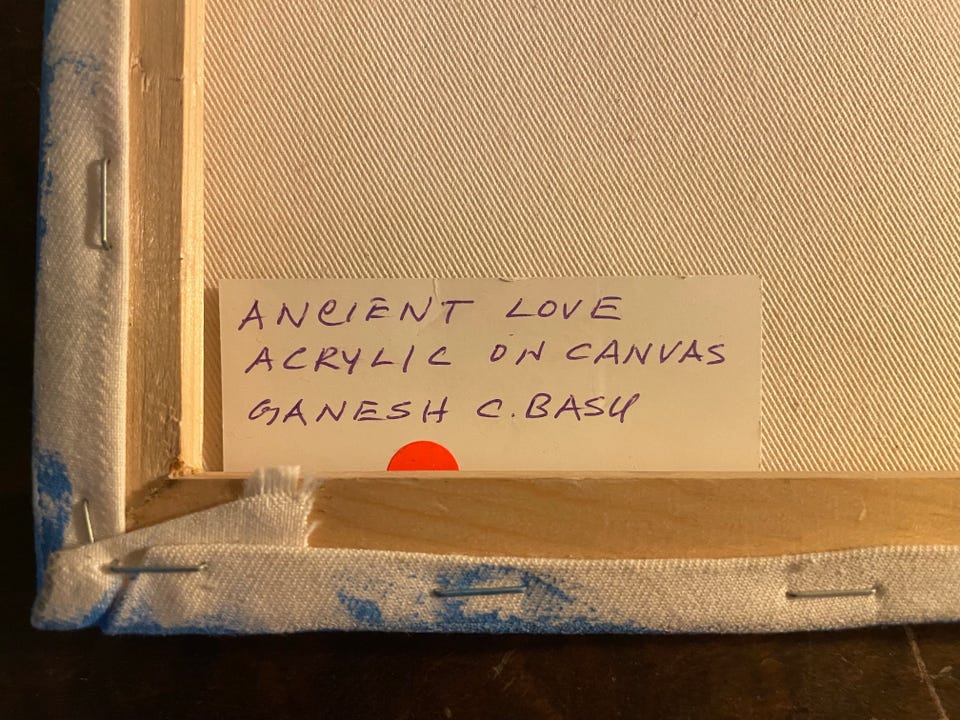 ANCIENT LOVE
ACRYLIC ON CANVAS
GANESH C. BASU